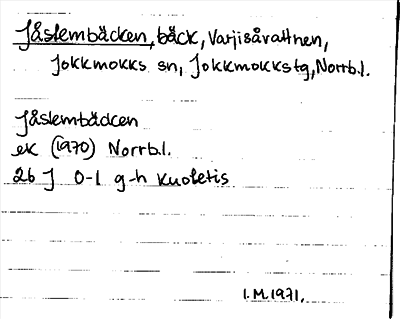 Jåstembäcken, bäck, Varjisåvattnen,
Jokkmokks sn, Jokkmokks tg, Norrb.l.
Jåstembäcken
ek (1970) Norrb.l.
26 J 0-1 g-h Kuoletis
I.M.1971.